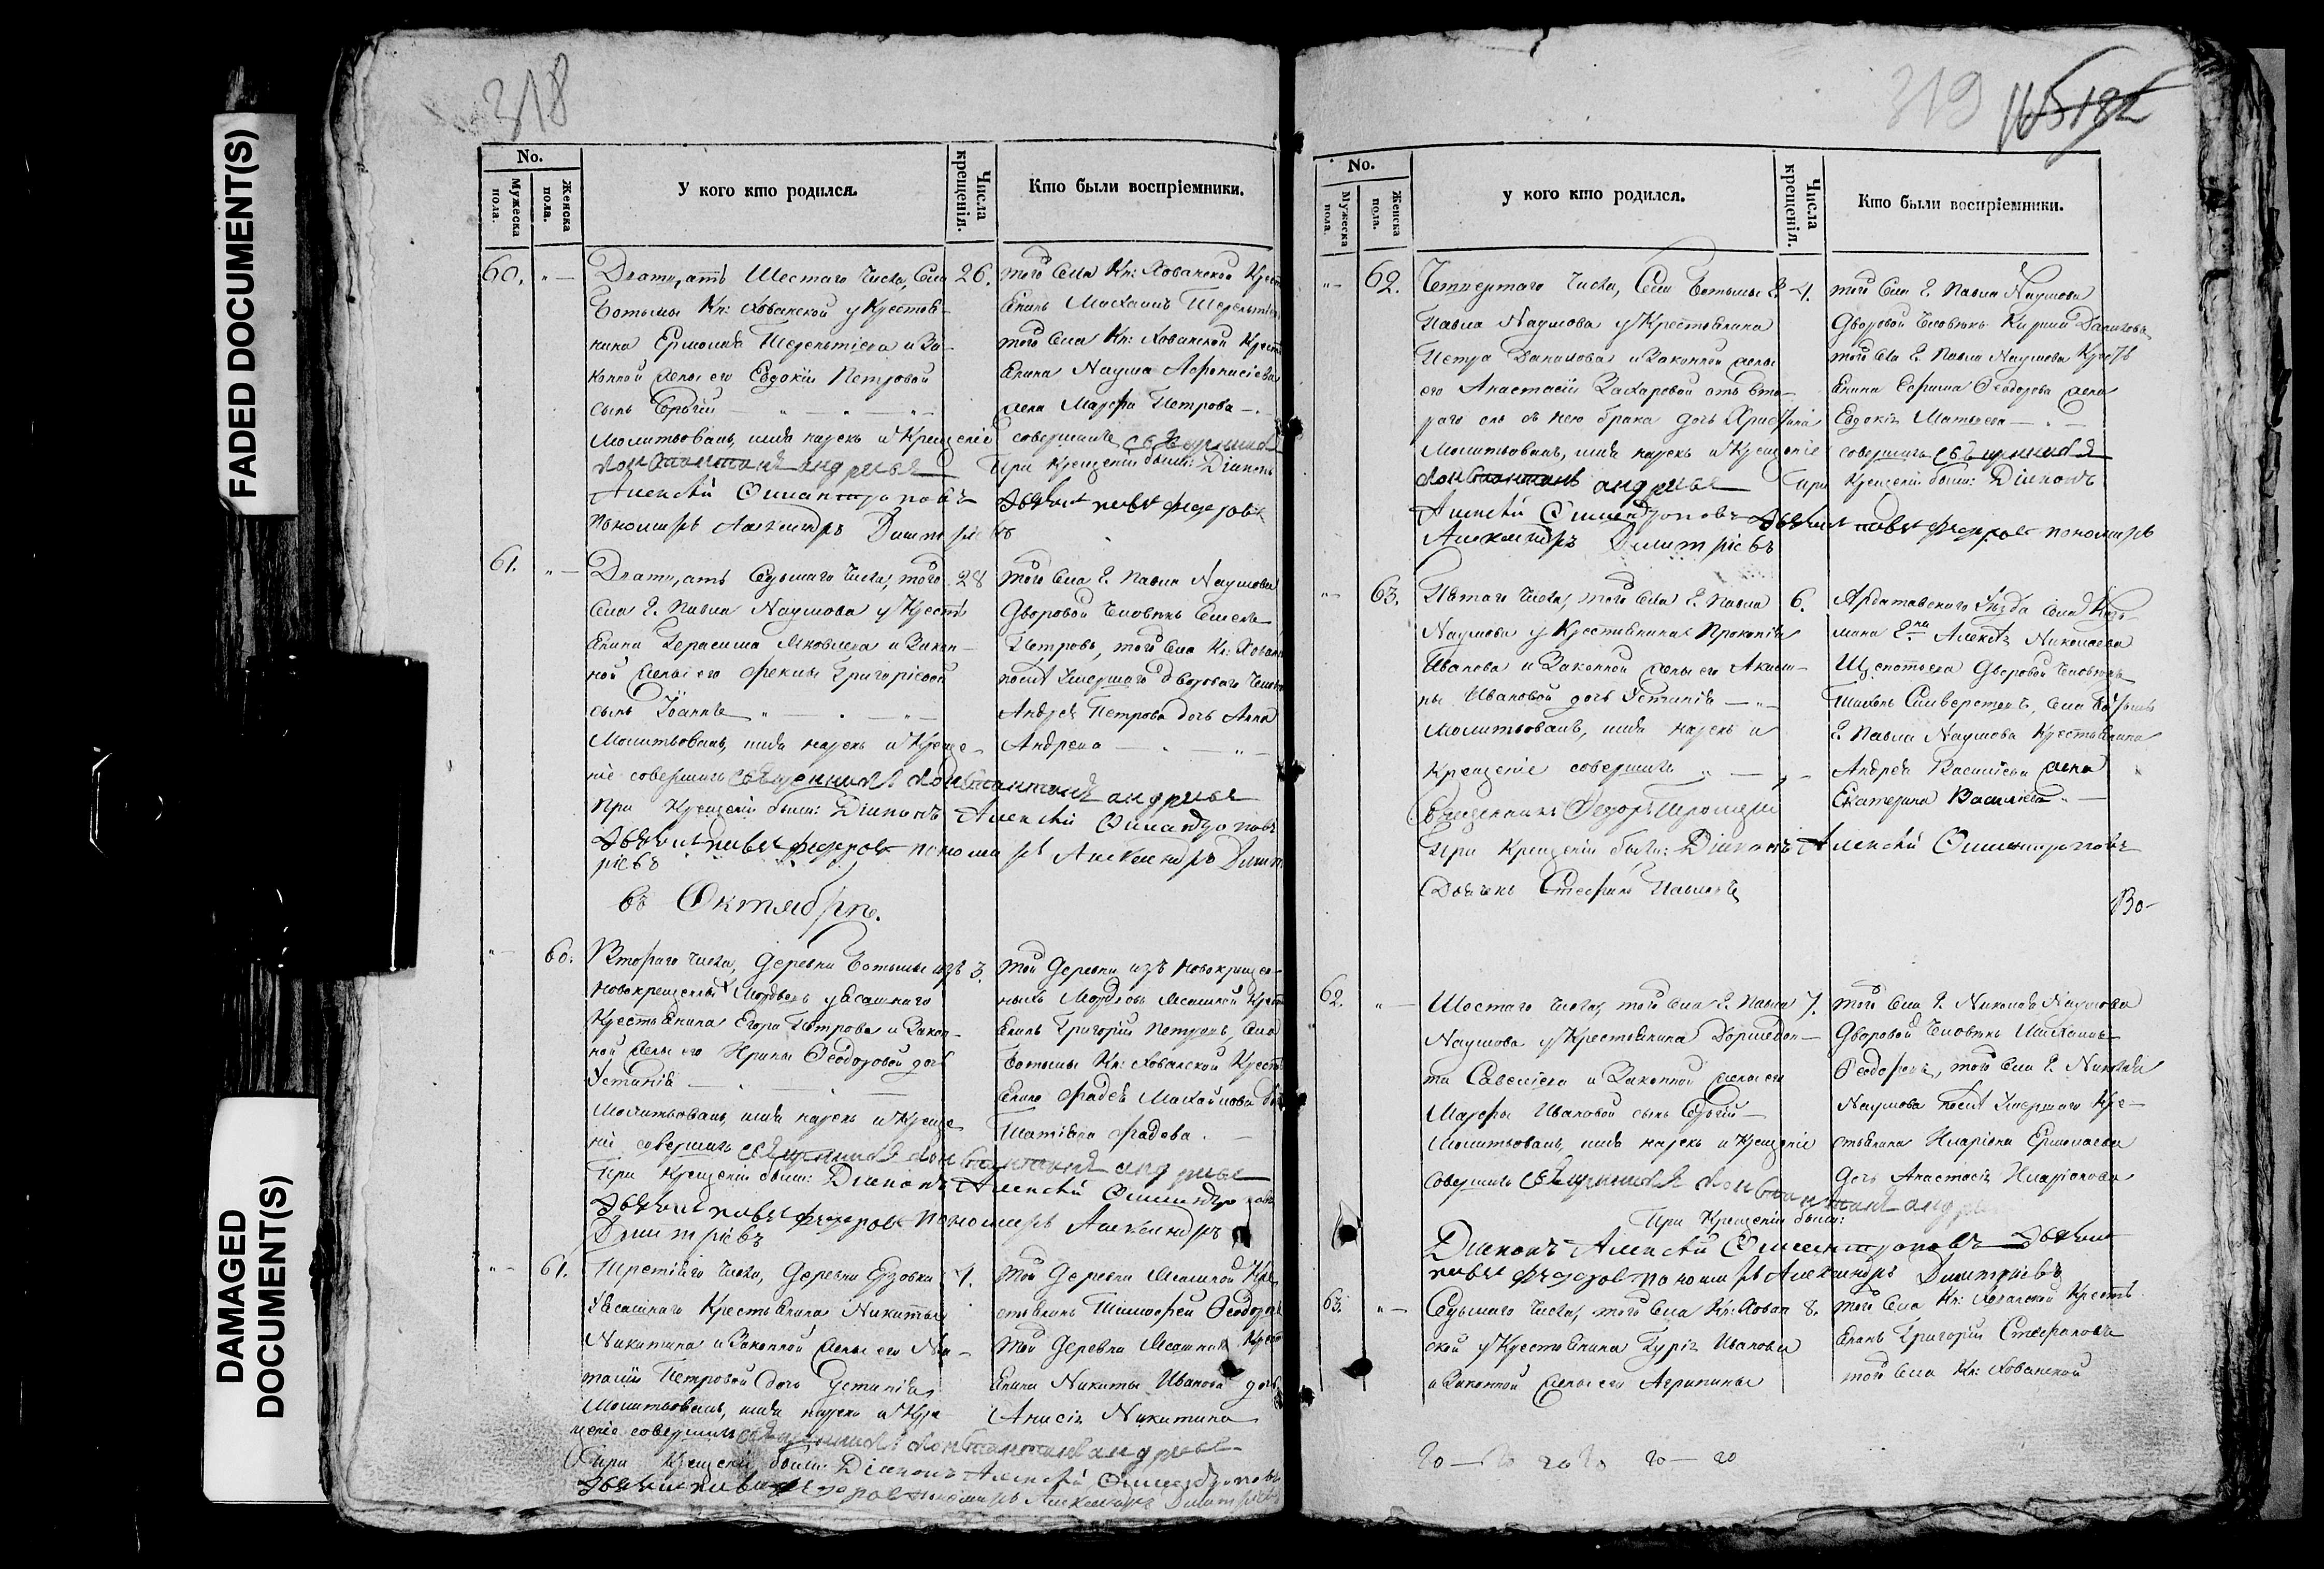 FADED DOCUMENT(S)
DAMAGED
DOCUMENT(S)
318
No.
Мужеска пола.
Женска пола.
У кого кто родился.
Числа крещенія.
Кто были воспріемники.
60.
Дватцать Шестаго числа, Села
Ботьмы Кн: Хованской у Крестья-
нина Ермолая и За-
конной жены его Евдокіи Петровой
сынъ Сергій
Молитвовалъ, имя нарекъ и Крещеніе совершилъ священникъ
Константинъ Андреевъ При Крещеніи были: Діаконъ
Алексѣй Дьячекъ Павел Федоров
пономарь Александръ Димитріевъ
26.
того Села Кн: Хованской Крест
янинъ Михаилъ
того Села Кн: Хованской Крест
янина Наума
жена Марфа Петрова
61.
Дватцать Седьмаго числа, того
Села Г. Павла Наумова у Кресть
янина Герасима Яковлева и Закон-
ной жены его Феклы Григорьевой
сынъ Іоаннъ
Молитвовалъ, имя нарекъ и Креще-
ніе совершилъ священникъ Константинъ Андреевъ
При Крещеніи были: Діаконъ Алексѣй
Дьячекъ Павел Федоров пономарь Александръ Димит
ріевъ
28
того Села Г. Павла Наумова
Дворовой Человѣкъ
Петровъ, того Села Кн: Хован
послѣ Умершаго дворового Челов
Андрея Петрова дочь Анна
Андреева
въ Октябрѣ.
60.
Втораго числа, Деревни Ботьмы изъ
новокрещеныхъ Мордовъ у Ясашнаго
Крестьянина Егора Петрова и Закон-
ной жены его Ирины Ѳеодоровой дочь
Устинія
Молитвовалъ, имя нарекъ и Креще
ніе совершилъ священникъ Константинъ Андреевъ
При Крещеніи были: Діаконъ Алексѣй
Дьячекъ Павел Федоров пономарь Александръ
Димитріевъ
3.
той Деревни изъ новокреще-
ныхъ Мордовъ Ясашной Крест
янинъ Григорій Петровъ, Села
Ботьмы Кн: Хованской Кресть
янина Фадея Михайлова дочь
Татіана Фадеева
61.
Третіяго числа, Деревни Ерзовки
У Ясашнаго Крестьянина Никиты
Никитина и Законной жены его На-
таліи Петровой дочь Устинія
Молитвовалъ, имя нарекъ и Кре
щеніе совершилъ священникъ Константинъ Андреевъ
При Крещеніи были: Діаконъ Алексѣй
Дьячекъ Павел Федоров пономарь Александръ Димитріевъ
4.
той Деревни Ясашной Кре
стьянинъ Тимофей Ѳеодоровъ
той Деревни Ясашнаго Крест
янина Никиты Иванова дочь
Анисія Никитина
319
165
182
No.
Мужеска пола.
Женска пола.
У кого кто родился.
Числа крещенія.
Кто были воспріемники.
62.
Четвертаго числа, Села Ботьмы Г.
Павла Наумова у Крестьянина
Петра Данилова и Законной жены
его Анастасіи Захаровой отъ вто-
раго его съ нею брака дочь
Молитвовалъ, имя нарекъ и Крещеніе совершилъ священникъ
Константинъ Андреевъ При Крещеніи были: Діаконъ
Алексѣй Дьячекъ Павел Федоров пономарь
Александръ Димитріевъ
4.
того Села Г. Павла Наумова
Дворовой Человѣкъ Данилова
того Села Г. Павла Наумова Кресть
янина Ефима Ѳеодорова жена
Евдокія Матвеева
63.
Пятаго числа, того Села Г. Павла
Наумова у Крестьянина Прокопія
Иванова и Законной жены его Акили-
ны Ивановой дочь Устинія
Молитвовалъ, имя нарекъ и
Крещеніе совершилъ
Священникъ Федоръ Троицкій
При Крещеніи были: Діаконъ Алексѣй
Дьячекъ Стефанъ Павловъ
6.
Ардатовскаго Уѣзда Села
Г.на Алексѣя Николаева
Дворовой Человѣкъ
Села Ботьмы
Г. Павла Наумова Крестьянина
Андрея Васильева жена
Екатерина Васильева
Во-
62.
Шестаго числа, того Села Г. Павла
Наумова у Крестьянина Дормедон-
та Савельева и Законной жены его
Марфы Ивановой сынъ Сергій
Молитвовалъ, имя нарекъ и Крещеніе
совершилъ священникъ Константинъ Андреевъ
При Крещеніи были:
Діаконъ Алексѣй Дьячекъ
Павел Федоров пономарь Александръ Димитріевъ
7.
того Села Г. Николая Наумова
Дворовой Человѣкъ Михаилъ
Ѳеодоровъ, того Села Г. Николая
Наумова послѣ Умершаго Кре-
стьянина Иларіона Ермолаева
дочь Анастасія Иларіонова
63.
Седьмаго числа, того Села Кн: Хован
ской у Крестьянина Гурія Иванова
и Законной жены его Агрипины
8.
того Села Кн: Хованской Кресть
янинъ Григорій Стефановъ
того Села Кн: Хованской